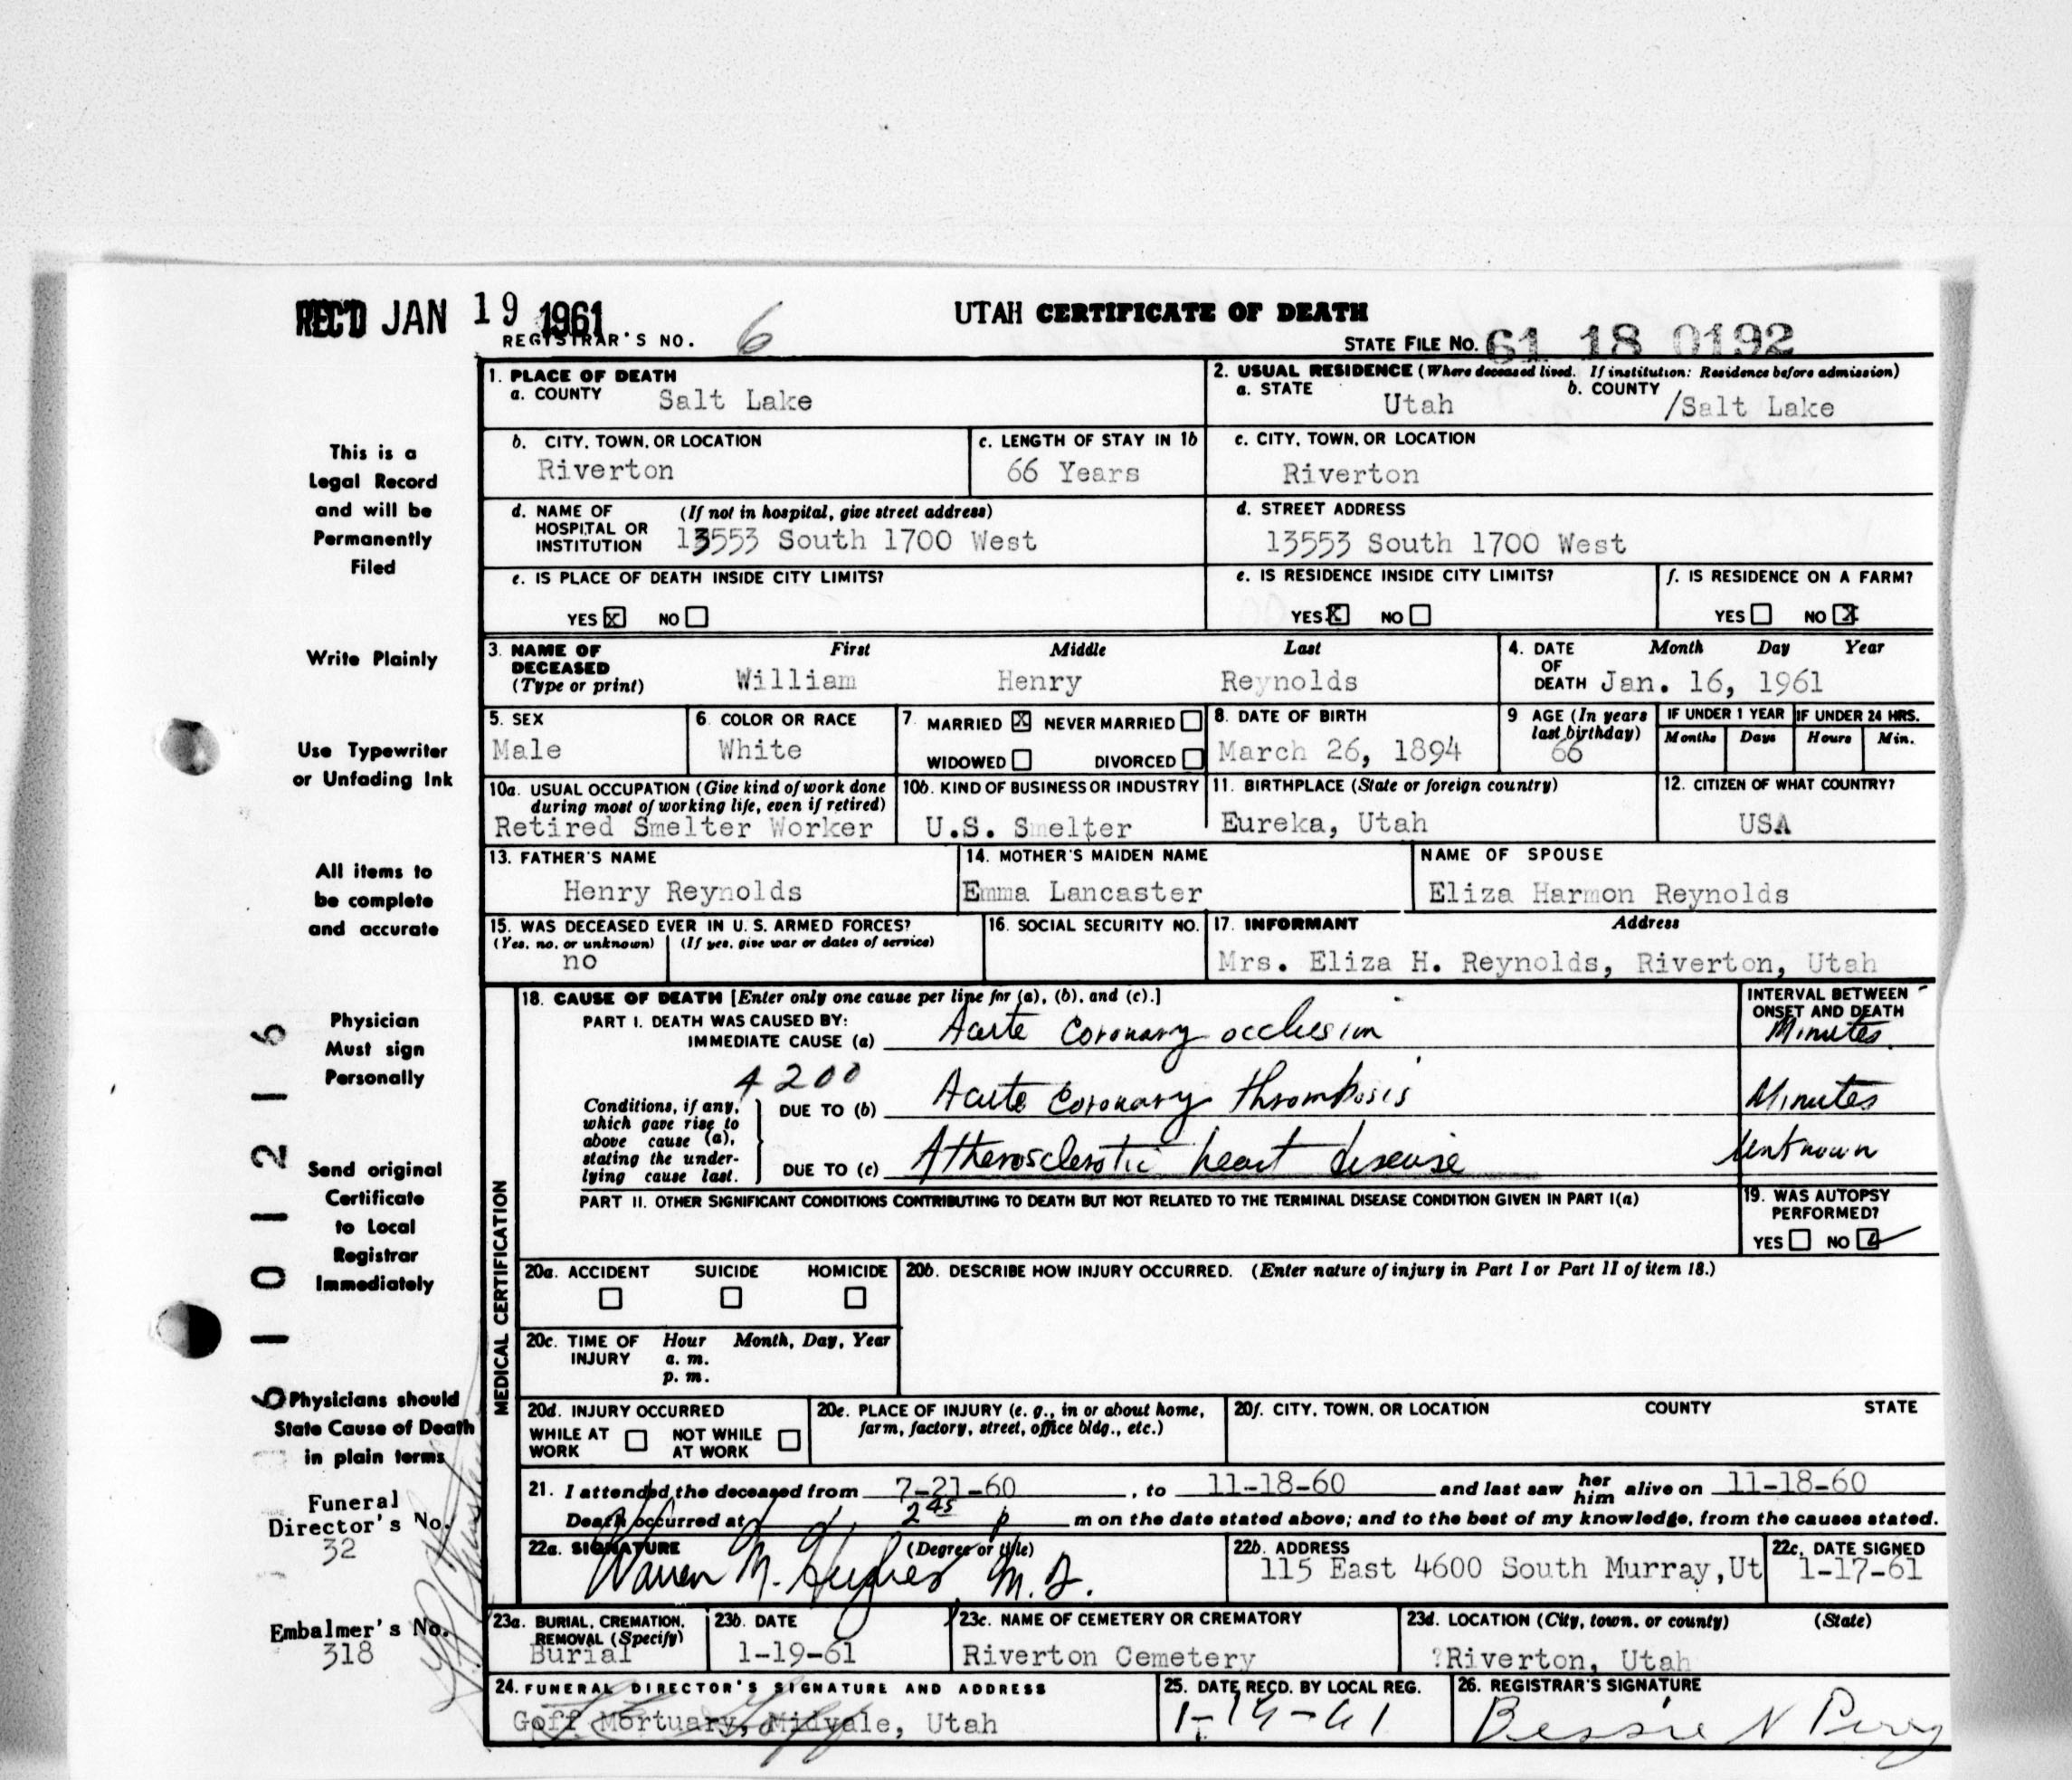 REC'D JAN 19 1961
UTAH CERTIFICATE OF DEATH
REGISTRAR'S NO. 6
STATE FILE No. 61 18 0192
1. PLACE OF DEATH
a. COUNTY Salt Lake
2. USUAL RESIDENCE (Where deceased lived. If institution: Residence before admission)
a. STATE Utah b. COUNTY /Salt Lake
b. CITY, TOWN, OR LOCATION Riverton
c. LENGTH OF STAY IN 1b 66 Years
c. CITY, TOWN, OR LOCATION Riverton
d. NAME OF HOSPITAL OR INSTITUTION (If not in hospital, give street address) 13553 South 1700 West
d. STREET ADDRESS 13553 South 1700 West
e. IS PLACE OF DEATH INSIDE CITY LIMITS?
YES X NO
e. IS RESIDENCE INSIDE CITY LIMITS?
YES X NO
f. IS RESIDENCE ON A FARM?
YES NO X
3. NAME OF DECEASED (Type or print)
First Middle Last
William Henry Reynolds
4. DATE OF DEATH Month Day Year
Jan. 16, 1961
5. SEX Male
6. COLOR OR RACE White
7. MARRIED X NEVER MARRIED
WIDOWED DIVORCED
8. DATE OF BIRTH March 26, 1894
9 AGE (In years last birthday) 66
IF UNDER 1 YEAR Months Days
IF UNDER 24 HRS. Hours Min.
10a. USUAL OCCUPATION (Give kind of work done during most of working life, even if retired)
Retired Smelter Worker
10b. KIND OF BUSINESS OR INDUSTRY
U.S. Smelter
11. BIRTHPLACE (State or foreign country)
Eureka, Utah
12. CITIZEN OF WHAT COUNTRY?
USA
13. FATHER'S NAME
Henry Reynolds
14. MOTHER'S MAIDEN NAME
Emma Lancaster
NAME OF SPOUSE
Eliza Harmon Reynolds
15. WAS DECEASED EVER IN U. S. ARMED FORCES?
(Yes, no, or unknown) (If yes, give war or dates of service)
no
16. SOCIAL SECURITY NO.
17. INFORMANT Address
Mrs. Eliza H. Reynolds, Riverton, Utah
MEDICAL CERTIFICATION
18. CAUSE OF DEATH [Enter only one cause per line for (a), (b), and (c).]
INTERVAL BETWEEN ONSET AND DEATH
PART I. DEATH WAS CAUSED BY:
IMMEDIATE CAUSE (a) Acute Coronary occlusion Minutes
4200
Conditions, if any, which gave rise to above cause (a), stating the underlying cause last.
DUE TO (b) Acute Coronary thrombosis Minutes
DUE TO (c) Atherosclerotic heart disease Unknown
PART II. OTHER SIGNIFICANT CONDITIONS CONTRIBUTING TO DEATH BUT NOT RELATED TO THE TERMINAL DISEASE CONDITION GIVEN IN PART I(a)
19. WAS AUTOPSY PERFORMED?
YES NO ✓
20a. ACCIDENT SUICIDE HOMICIDE
20b. DESCRIBE HOW INJURY OCCURRED. (Enter nature of injury in Part I or Part II of item 18.)
20c. TIME OF INJURY Hour Month, Day, Year
a. m.
p. m.
20d. INJURY OCCURRED
WHILE AT WORK NOT WHILE AT WORK
20e. PLACE OF INJURY (e. g., in or about home, farm, factory, street, office bldg., etc.)
20f. CITY, TOWN, OR LOCATION COUNTY STATE
21. I attended the deceased from 7-21-60, to 11-18-60 and last saw her him alive on 11-18-60
Death occurred at 2 45 p m on the date stated above; and to the best of my knowledge, from the causes stated.
22a. SIGNATURE (Degree or title)
Warren M. Hughes M.D.
22b. ADDRESS
115 East 4600 South Murray,Ut
22c. DATE SIGNED
1-17-61
23a. BURIAL, CREMATION, REMOVAL (Specify)
Burial
23b. DATE
1-19-61
23c. NAME OF CEMETERY OR CREMATORY
Riverton Cemetery
23d. LOCATION (City, town, or county) (State)
?Riverton, Utah
24. FUNERAL DIRECTOR'S SIGNATURE AND ADDRESS
Goff Mortuary, Midvale, Utah
25. DATE RECD. BY LOCAL REG.
1-19-61
26. REGISTRAR'S SIGNATURE
Bessie N
This is a
Legal Record
and will be
Permanently
Filed
Write Plainly
Use Typewriter
or Unfading Ink
All items to
be complete
and accurate
Physician
Must sign
Personally
Send original
Certificate
to Local
Registrar
Immediately
Physicians should
State Cause of Death
in plain terms
Funeral
Director's No.
32
Embalmer's No.
318